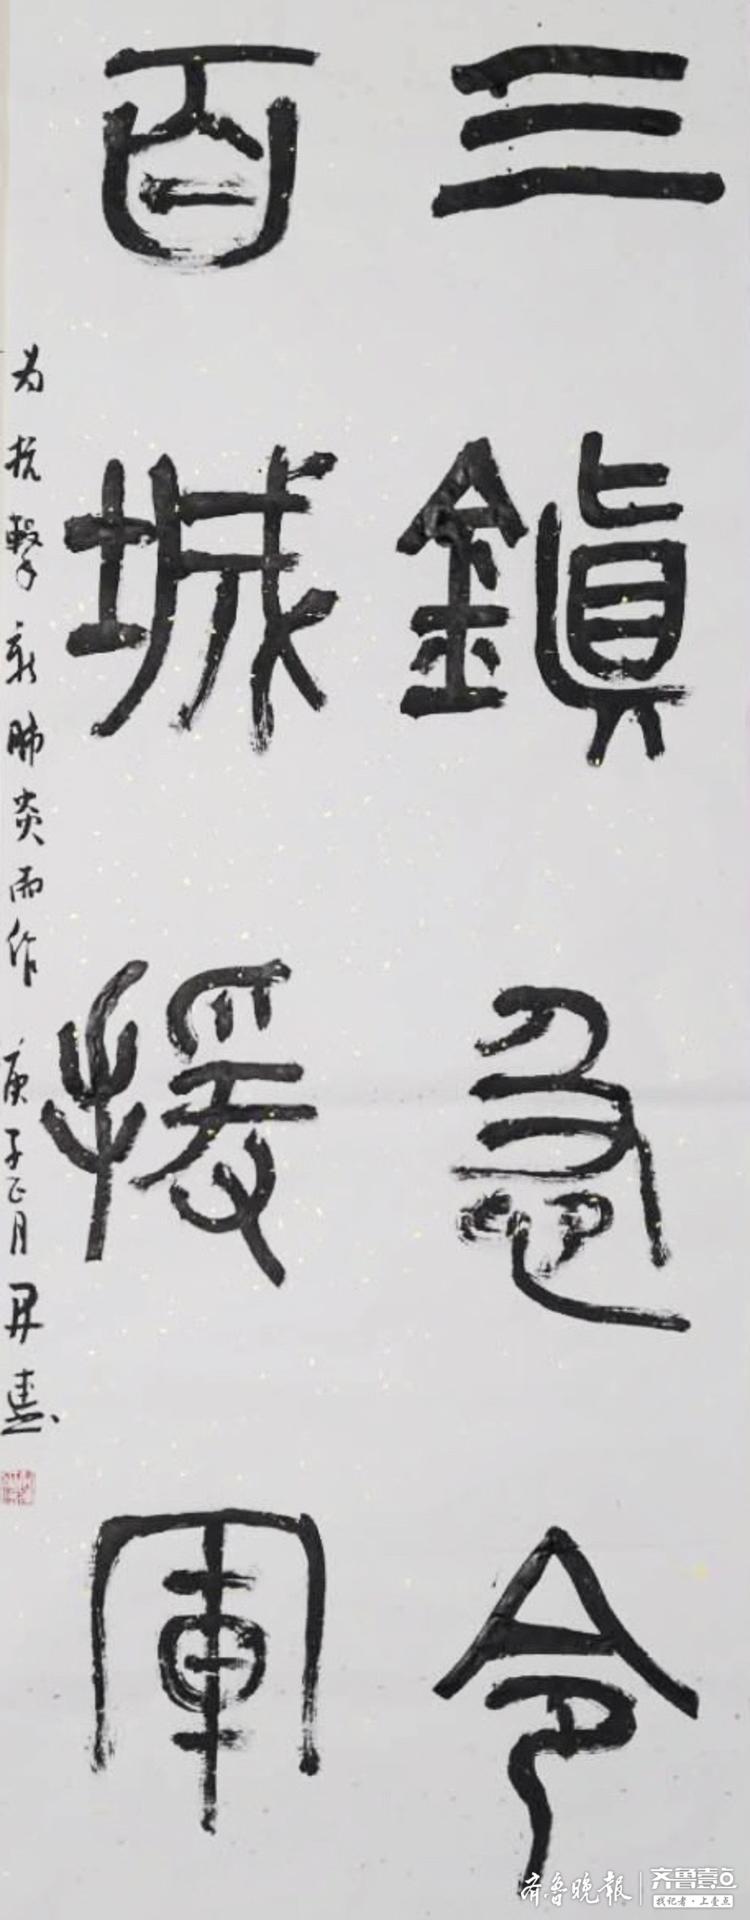 三鎮急令
百城援軍
为抗擊新肺炎而作 庚子正月
齐鲁晚报
齐鲁壹点
找记者·上壹点